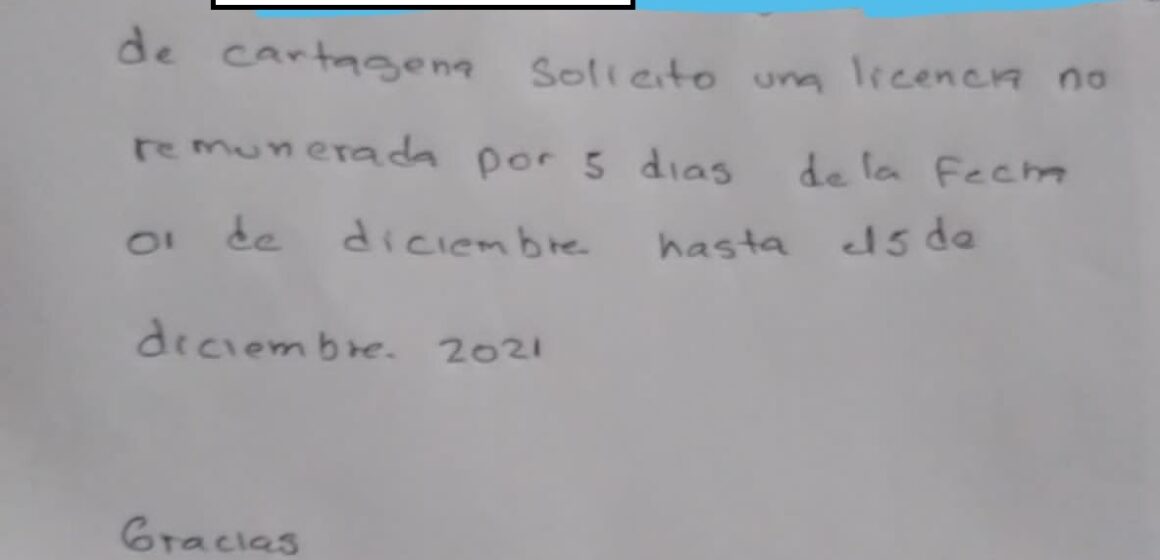 de cartagena Solicito una licencia no
remunerada por 5 dias de la Fecha
01 de diciembre hasta el 5 de
diciembre. 2021
Gracias